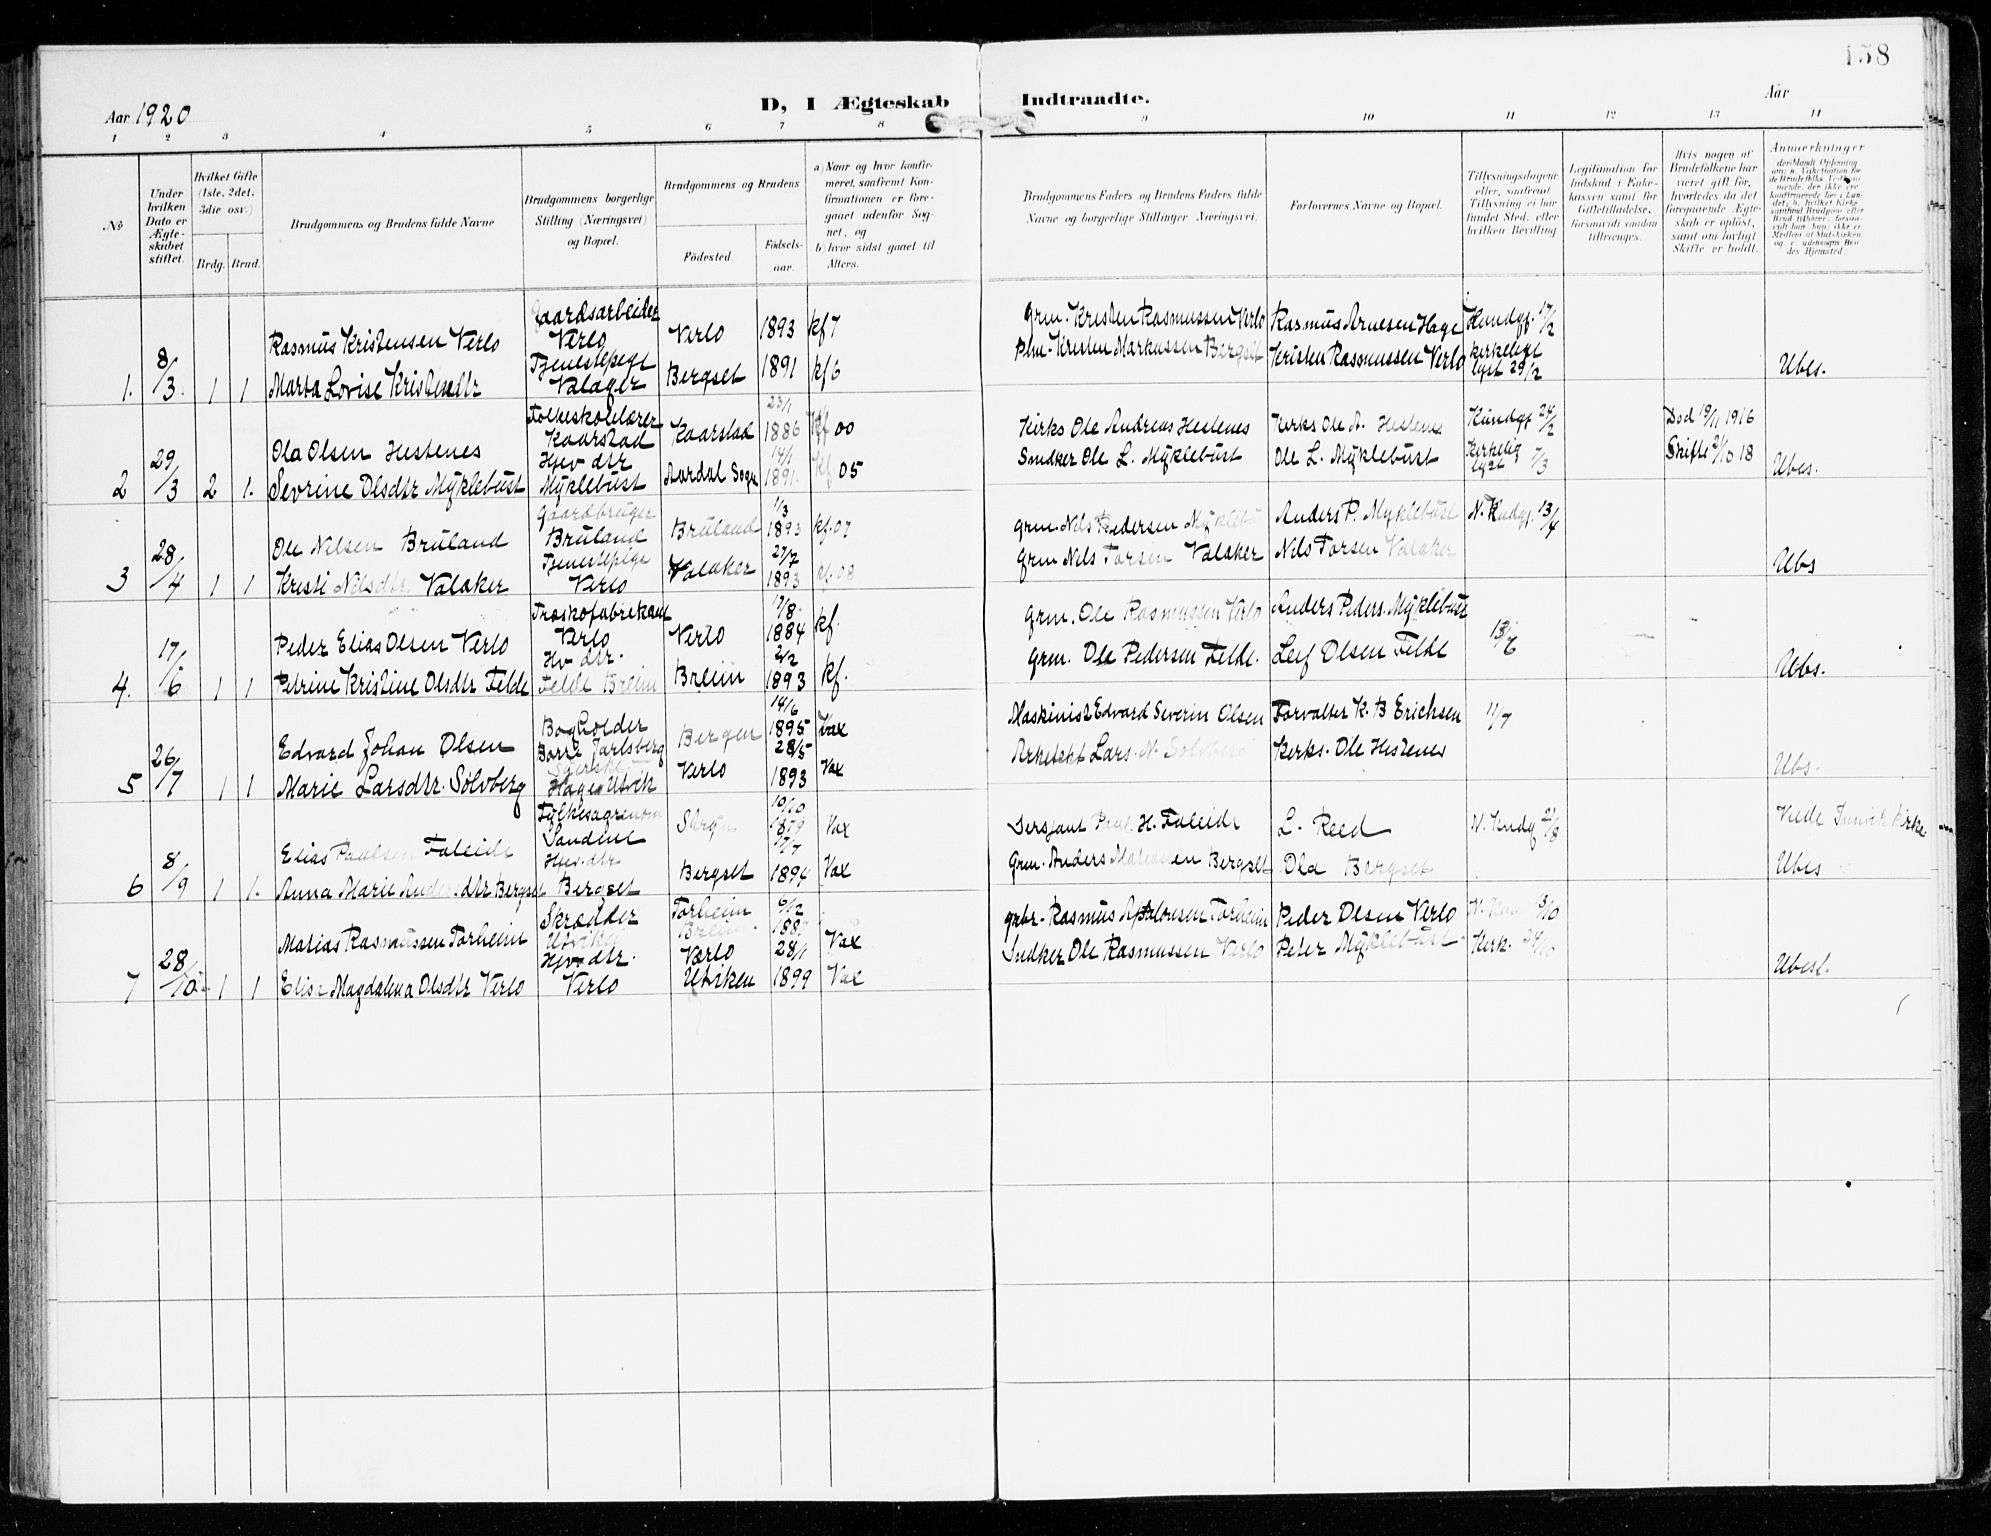 158
Aar 1920
D, I Ægteskab Indtraadte.
Aar
1 2 3 4 5 6 7 8 9 10 11 12 13 14
№
Under hvilken Dato er Ægteskabet stiftet.
Hvilket Gifte (1ste, 2det, 3die osv.)
Brdg. Brud.
Brudgommens og Brudens fulde Navne
Brudgommens borgerlige Stilling (Næringsvei) og Bopæl.
Brudgommens og Brudens
Fødested.
Fødselsaar.
a) Naar og hvor konfirmeret, saafremt Konfirmationen er foregaaet udenfor Sognet, og
b) hvor sidst gaaet til Alters.
Brudgommens Faders og Brudens Faders fulde Navne og borgerlige Stillinger Næringsvei.
Forlovernes Navne og Bopæl.
Tillysningsdagene eller, saafremt Tillysning ei har fundet Sted, efter hvilken Bevilling
Legitimation for Indskud i Enkekassen samt for Giftetilladelse, forsaavidt saadan tiltrænges.
Hvis nogen af Brudefolkene har været gift før, hvorledes da det foregaaende Ægteskab er opløst, samt om lovligt Skifte er holdt.
Anmerkninger
1. 8/3. 1 1
Rasmus Kristensen Verlo
Marta Lovise Kristensdtr
Gaardsarbeider
Verlo
Tjenestepige
Valager
Verlo 1893 kf 7
Bergset 1891 kf 6
Grm. Kristen Rasmussen Verlo
Plm. Kristen Markussen Bergset
Rasmus Arnesen Hage
Kristen Rasmussen Verlo
Kundgj. 17/2
kirkeligt
lyst 29/2
Ubes.
2 29/3 2 1.
Ola Olsen Hestenes
Sevrine Olsdtr Myklebust
Folkeskolelærer
Kaarstad
Hjev dtr
Myklebust
Kaarstad 23/1 1886 Kf 00
Aardal Sogn 14/1 1891. kf 05
Kirks Ole Andreas Hestenes
Smdker Ole L. Myklebust
Kerks Ole A. Hestenes
Ole L. Myklebust
Kundgj 24/2
kirkelig
lyst 7/3
Død 19/11 1916
Skifte 21/10 18
Ubes.
3 28/4 1 1
Ole Nilsen Bruland
Kristi Nilsdtr Valaker
Gaardbruger
Bruland
Tjenestepige
Verlo
Bruland 1/3 1893 kf. 07
Valaker 27/7 1893 kf. 08
Grm Nils Pedersen
Grm Nils Torsen Valaker
Anders P. Myklebust
Nils Torsen Valaker
N. Kndgj. 13/4
Ubs
4. 17/6 1 1
Peder Elias Olsen Verlo
Petrine Kristine Olsdtr Felde
Træskofabrekant
Verlo
Hv dtr.
Felde Breim
Verlo 17/8 1884 kf.
Breim 2/2 1893 kf.
Grm. Ole Rasmussen Verlo
Grm. Ole Pedersen Felde.
Anders Peders. Myklebust
Leif Olsen Felde
13/6
Ubs.
5 26/7 1 1
Edvard Johan Olsen
Marie Larsdtr. Solvberg
Bogholder
Borre Jarlsberg
Hagen Utvik
Bergen 14/6 1895 Vax
Verlo 28/5 1893 Vax
Maskinist Edvard Severin Olsen
Arkitekt Lars. N. Solvberg
Forvalter K. B Erichsen
Kerks. Ole Hestenes
11/7
Ubs.
6 8/9 1 1.
Elias Paulsen Faleide
Anna Marie Andersdtr Bergset
Fylkesagronom
Sandene
Hjev. dtr
Bergset
Stryn 10/10 1879 Vax
Bergset 17/7 1894 Vax
Sersjant Paul H. Faleide
Grm. Anders Matiassen Bergset
L. Reed
Ola Bergset
N. Kndg 21/8
Viede Innvik kirke
Ubes
7 28/10 1 1
Matias Rasmussen Torheim
Elise Magdalena Olsdtr Verlo
Skrædder
Utviken
Hjv. dtr.
Verlo
Torheim Breim 6/12 Vax
Verlo Utviken 28/1 1899 Vax
grbr. Rasmus Absalonsen Torheim
Indker Ole Rasmussen Verlo
Peder Olsen Verlo
Peter Myklebust
Kerk. 24/10
Ubest.